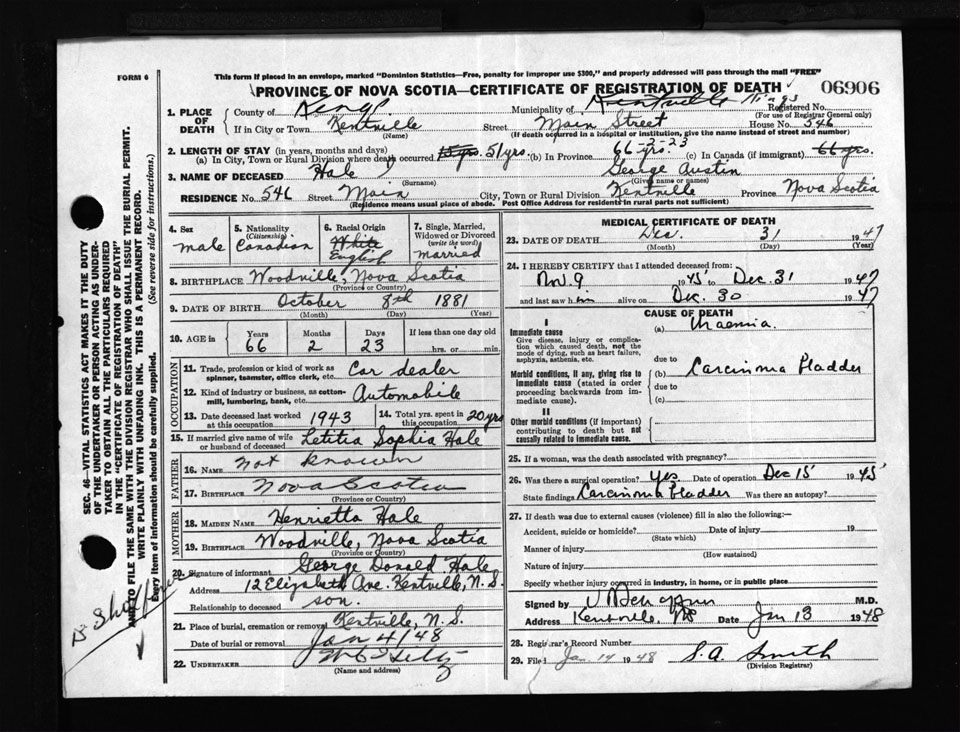 FORM 6
This form if placed in an envelope, marked "Dominion Statistics—Free, penalty for improper use $300," and properly addressed will pass through the mail "FREE"
PROVINCE OF NOVA SCOTIA—CERTIFICATE OF REGISTRATION OF DEATH
06906
1. PLACE OF DEATH
County of Kings Municipality of Kentville Kings Registered No.
(For use of Registrar General only)
If in City or Town Kentville Street Main Street House No. 546
(Name) (If death occurred in a hospital or institution, give the name instead of street and number)
2. LENGTH OF STAY (in years, months and days) 66-2-23
(a) In City, Town or Rural Division where death occurred 51 yrs. (b) In Province 66 yrs. (c) In Canada (if immigrant) 66 yrs.
3. NAME OF DECEASED Hale George Austin
(Surname) (Given name or names)
RESIDENCE No. 546 Street Main City, Town or Rural Division Kentville Province Nova Scotia
(Residence means usual place of abode. Post Office Address for residents in rural parts not sufficient)
4. Sex male
5. Nationality (Citizenship) Canadian
6. Racial Origin White English
7. Single, Married, Widowed or Divorced (write the word) married
8. BIRTHPLACE Woodville, Nova Scotia
(Province or Country)
9. DATE OF BIRTH October 8th 1881
(Month) (Day) (Year)
10. AGE in Years Months Days If less than one day old
66 2 23 hrs. or min.
OCCUPATION
11. Trade, profession or kind of work as spinner, teamster, office clerk, etc. Car dealer
12. Kind of industry or business, as cotton-mill, lumbering, bank, etc. Automobile
13. Date deceased last worked at this occupation 1943
14. Total yrs. spent in this occupation 20 yrs
15. If married give name of wife or husband of deceased Letitia Sophia Hale
FATHER
16. NAME not known
17. BIRTHPLACE Nova Scotia
(Province or Country)
MOTHER
18. MAIDEN NAME Henrietta Hale
19. BIRTHPLACE Woodville, Nova Scotia
(Province or Country)
20. Signature of informant George Donald Hale
Address 12 Elizabeth Ave. Kentville, N.S.
Relationship to deceased son.
21. Place of burial, cremation or removal Kentville, N.S.
Date of burial or removal Jan 4/48
22. UNDERTAKER
(Name and address)
MEDICAL CERTIFICATE OF DEATH
23. DATE OF DEATH Dec. 31 1947
(Month) (Day) (Year)
24. I HEREBY CERTIFY that I attended deceased from:
Nov. 9 1945 to Dec. 31 1947
and last saw him alive on Dec. 30 1947
CAUSE OF DEATH
I
Immediate cause (a) Uraemia.
Give disease, injury or complication which caused death, not the mode of dying, such as heart failure, asphyxia, asthenia, etc.
due to
Morbid conditions, if any, giving rise to immediate cause (stated in order proceeding backwards from immediate cause). (b) Carcinoma Bladder
due to
(c)
II
Other morbid conditions (if important) contributing to death but not causally related to immediate cause.
25. If a woman, was the death associated with pregnancy?
26. Was there a surgical operation? Yes Date of operation Dec 15 1945
State findings Carcinoma Bladder Was there an autopsy?
27. If death was due to external causes (violence) fill in also the following:—
Accident, suicide or homicide? Date of injury 19
(State which)
Manner of injury
(How sustained)
Nature of injury
Specify whether injury occurred in industry, in home, or in public place
Signed by M.D.
Address Kentville NS Date Jan 13 1948
28. Registrar's Record Number
29. Filed Jan 14 1948 S.A. Smith
(Division Registrar)
SEC. 46—VITAL STATISTICS ACT MAKES IT THE DUTY
OF THE UNDERTAKER OR PERSON ACTING AS UNDER-
TAKER TO OBTAIN ALL THE PARTICULARS REQUIRED
IN THE "CERTIFICATE OF REGISTRATION OF DEATH"
AND TO FILE THE SAME WITH THE DIVISION REGISTRAR WHO SHALL ISSUE THE BURIAL PERMIT.
WRITE PLAINLY WITH UNFADING INK. THIS IS A PERMANENT RECORD.
Every item of information should be carefully supplied. (See reverse side for instructions.)